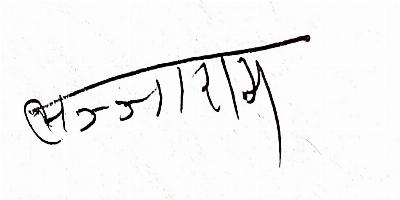 सज्जाराम